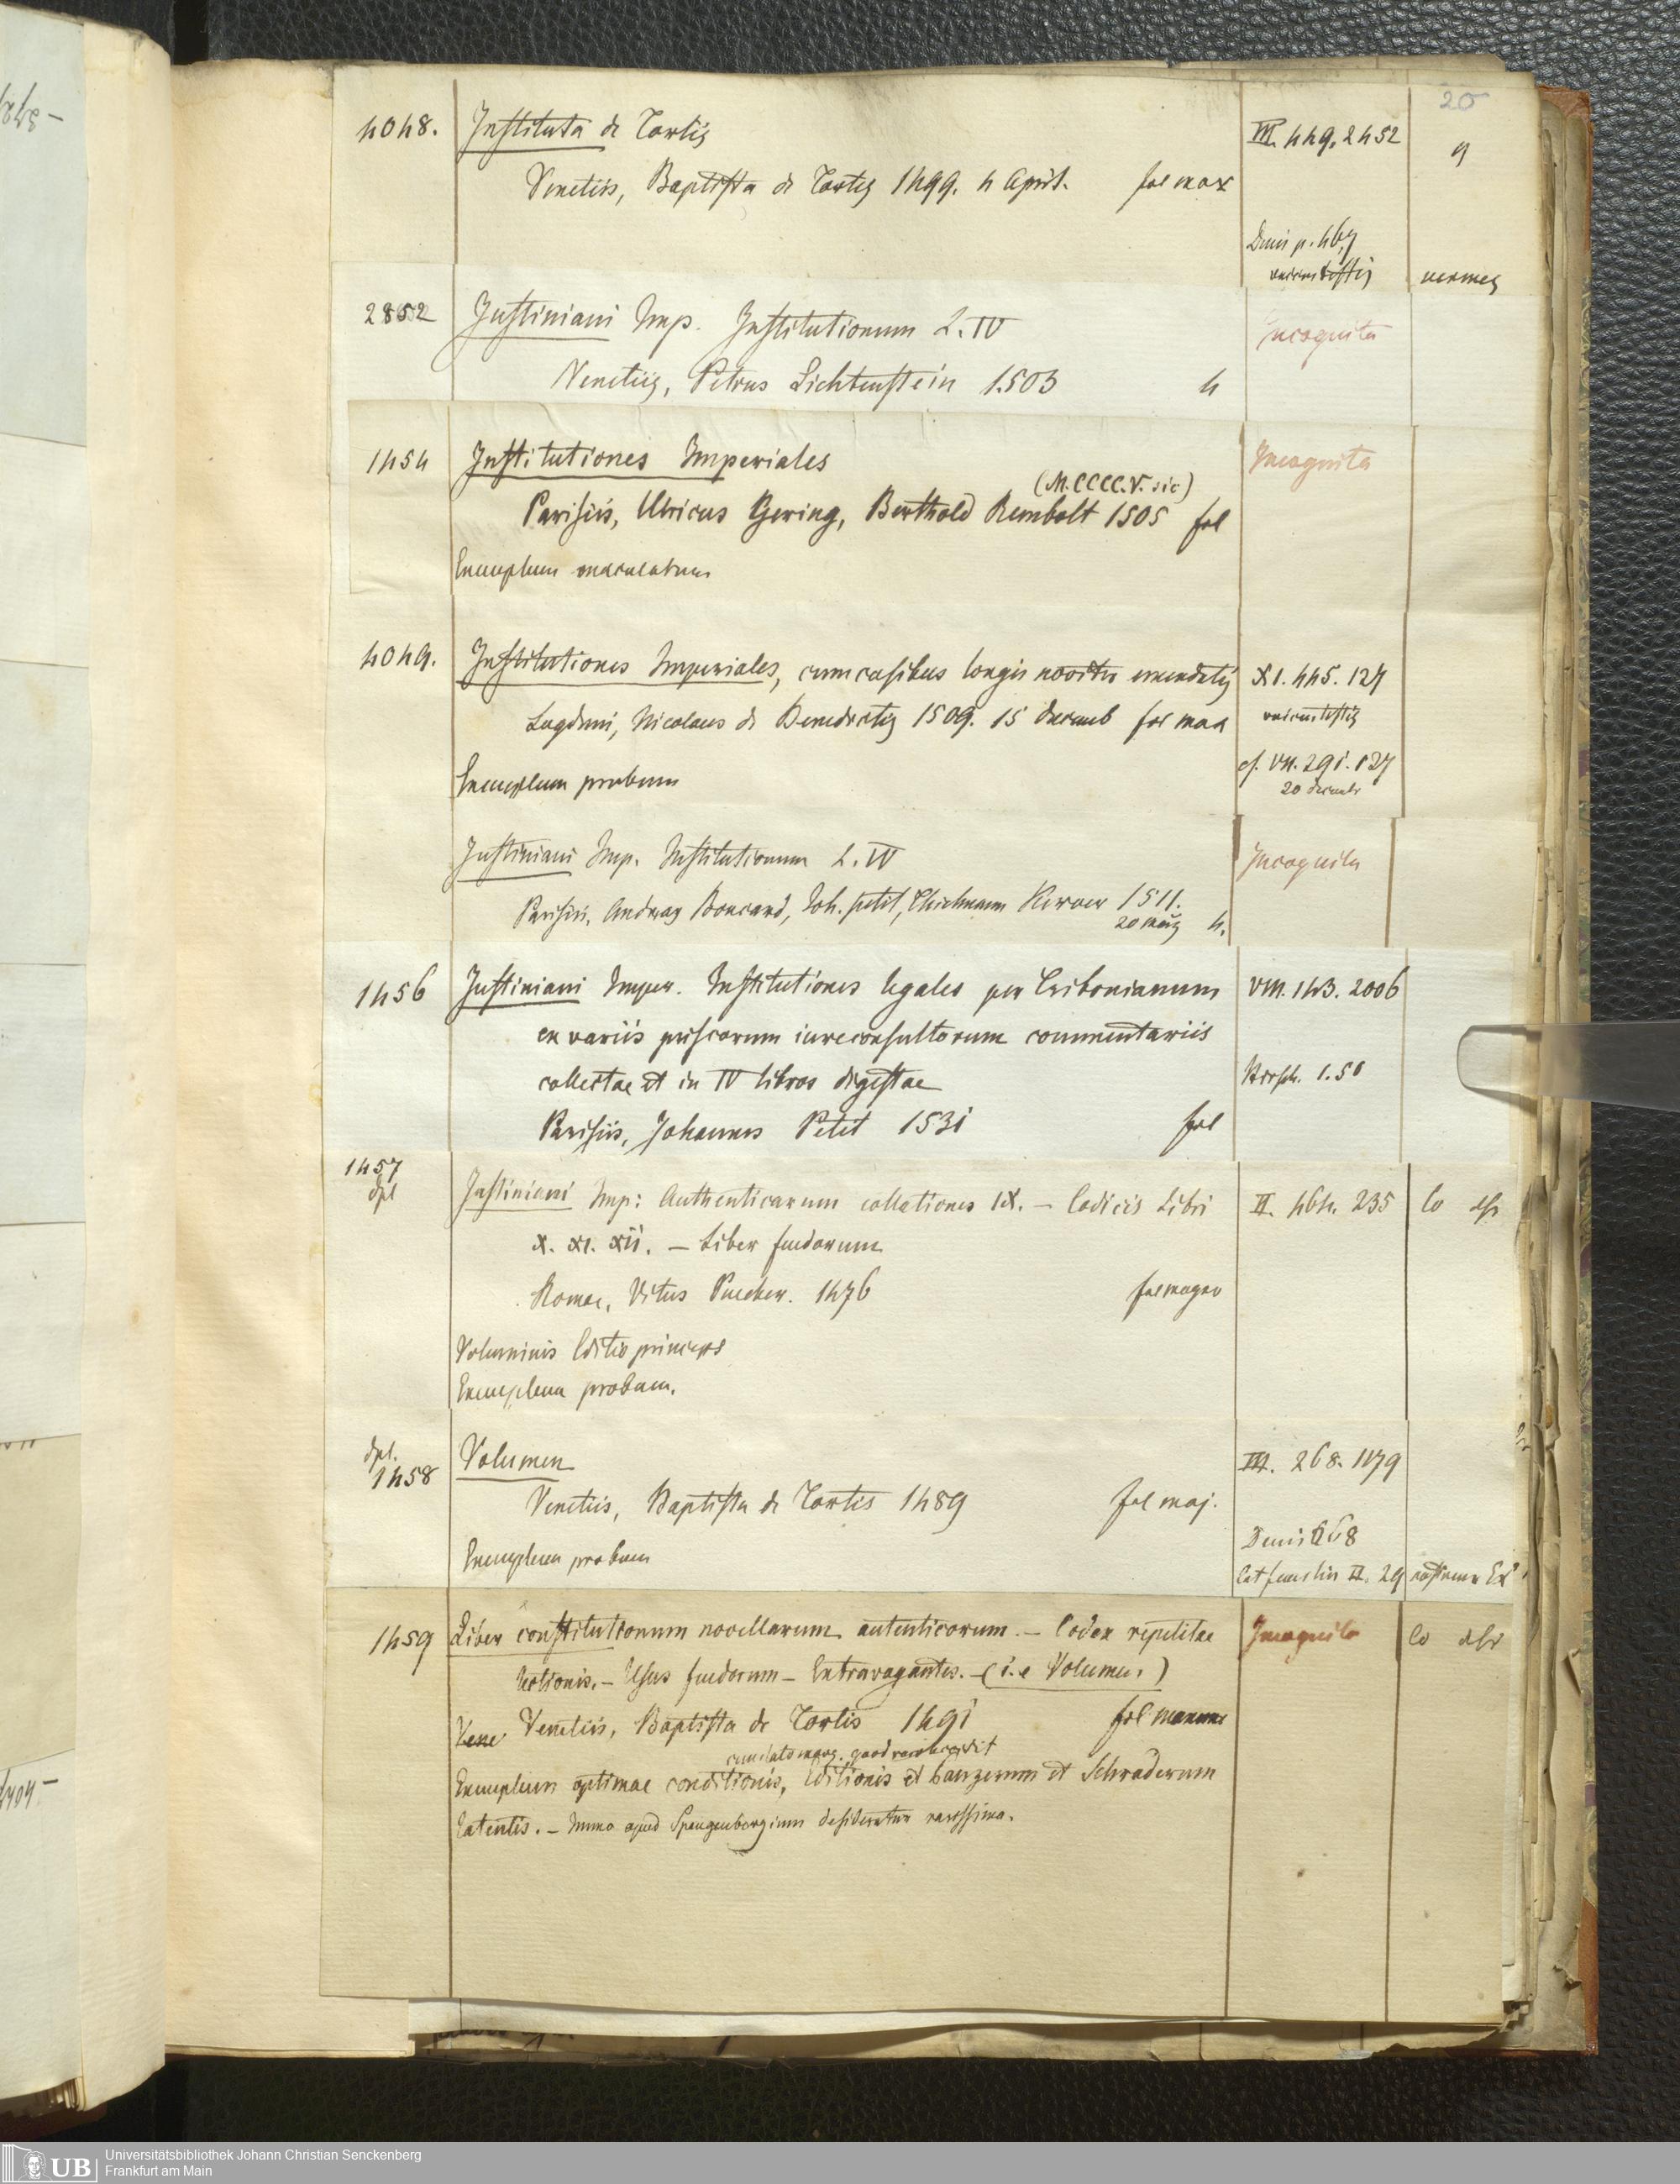 20
4048. Instituta de Tortis III. 449. 2452
Venetiis, Baptista de Tortis 1499. 4 April. fol max
Denis p. 467
2852 Justiniani Imp. Institutionum L. IV Incognita
Venetiis, Petrus Lichtenstein 1503 4
1454 Institutiones Imperiales Incognita
(M.CCCC.V. sic)
Parisiis, Ulricus Gering, Berthold Rembolt 1505 fol
Exemplum maculatum
4049. Institutiones Imperiales, cum casibus longis noviter emendatis XI. 445. 127
Lugduni, Nicolaus de Benedictis 1509. 15 Decemb fol max
Exemplum probum cf. VII. 291. 127
20 Decembr
Justiniani Imp. Institutionum L. IV Incognita
Parisiis, Andreas Boucard, Joh. Petit, Thielmann Kerver 1511.
20 4.
1456 Justiniani Imper. Institutiones legales per Tribonianum VIII. 143. 2006
ex variis priscorum iureconsultorum commentariis
collectae et in IV libros digestae 1.50
Parisiis, Johannes Petit 1531 fol
1457
dpl
Justiniani Imp: Authenticarum collationes IX. – Codicis Libri II. 464. 235
X. XI. XII. – Liber feudorum
Romae, Vitus Puecher. 1476 fol magno
Voluminis Editio princeps
Exemplum probum.
dpl.
1458 Volumen III. 268. 1179
Venetiis, Baptista de Tortis 1489 fol maj.
Denis 268
Exemplum probum
1459 Liber constitutionum novellarum autenticorum. – Codex repetitae Incognita
– Usus feudorum – Extravagantes. – (i.e Volumen)
Vene Venetiis, Baptista de Tortis 1491 fol
cum lato marg. quod raro
Exemplum optimae conditionis, Editionis et Panzerum et Schraderum
latentis. – Immo apud Spangenbergium desideratur rarissima.
UB
Universitätsbibliothek Johann Christian Senckenberg
Frankfurt am Main